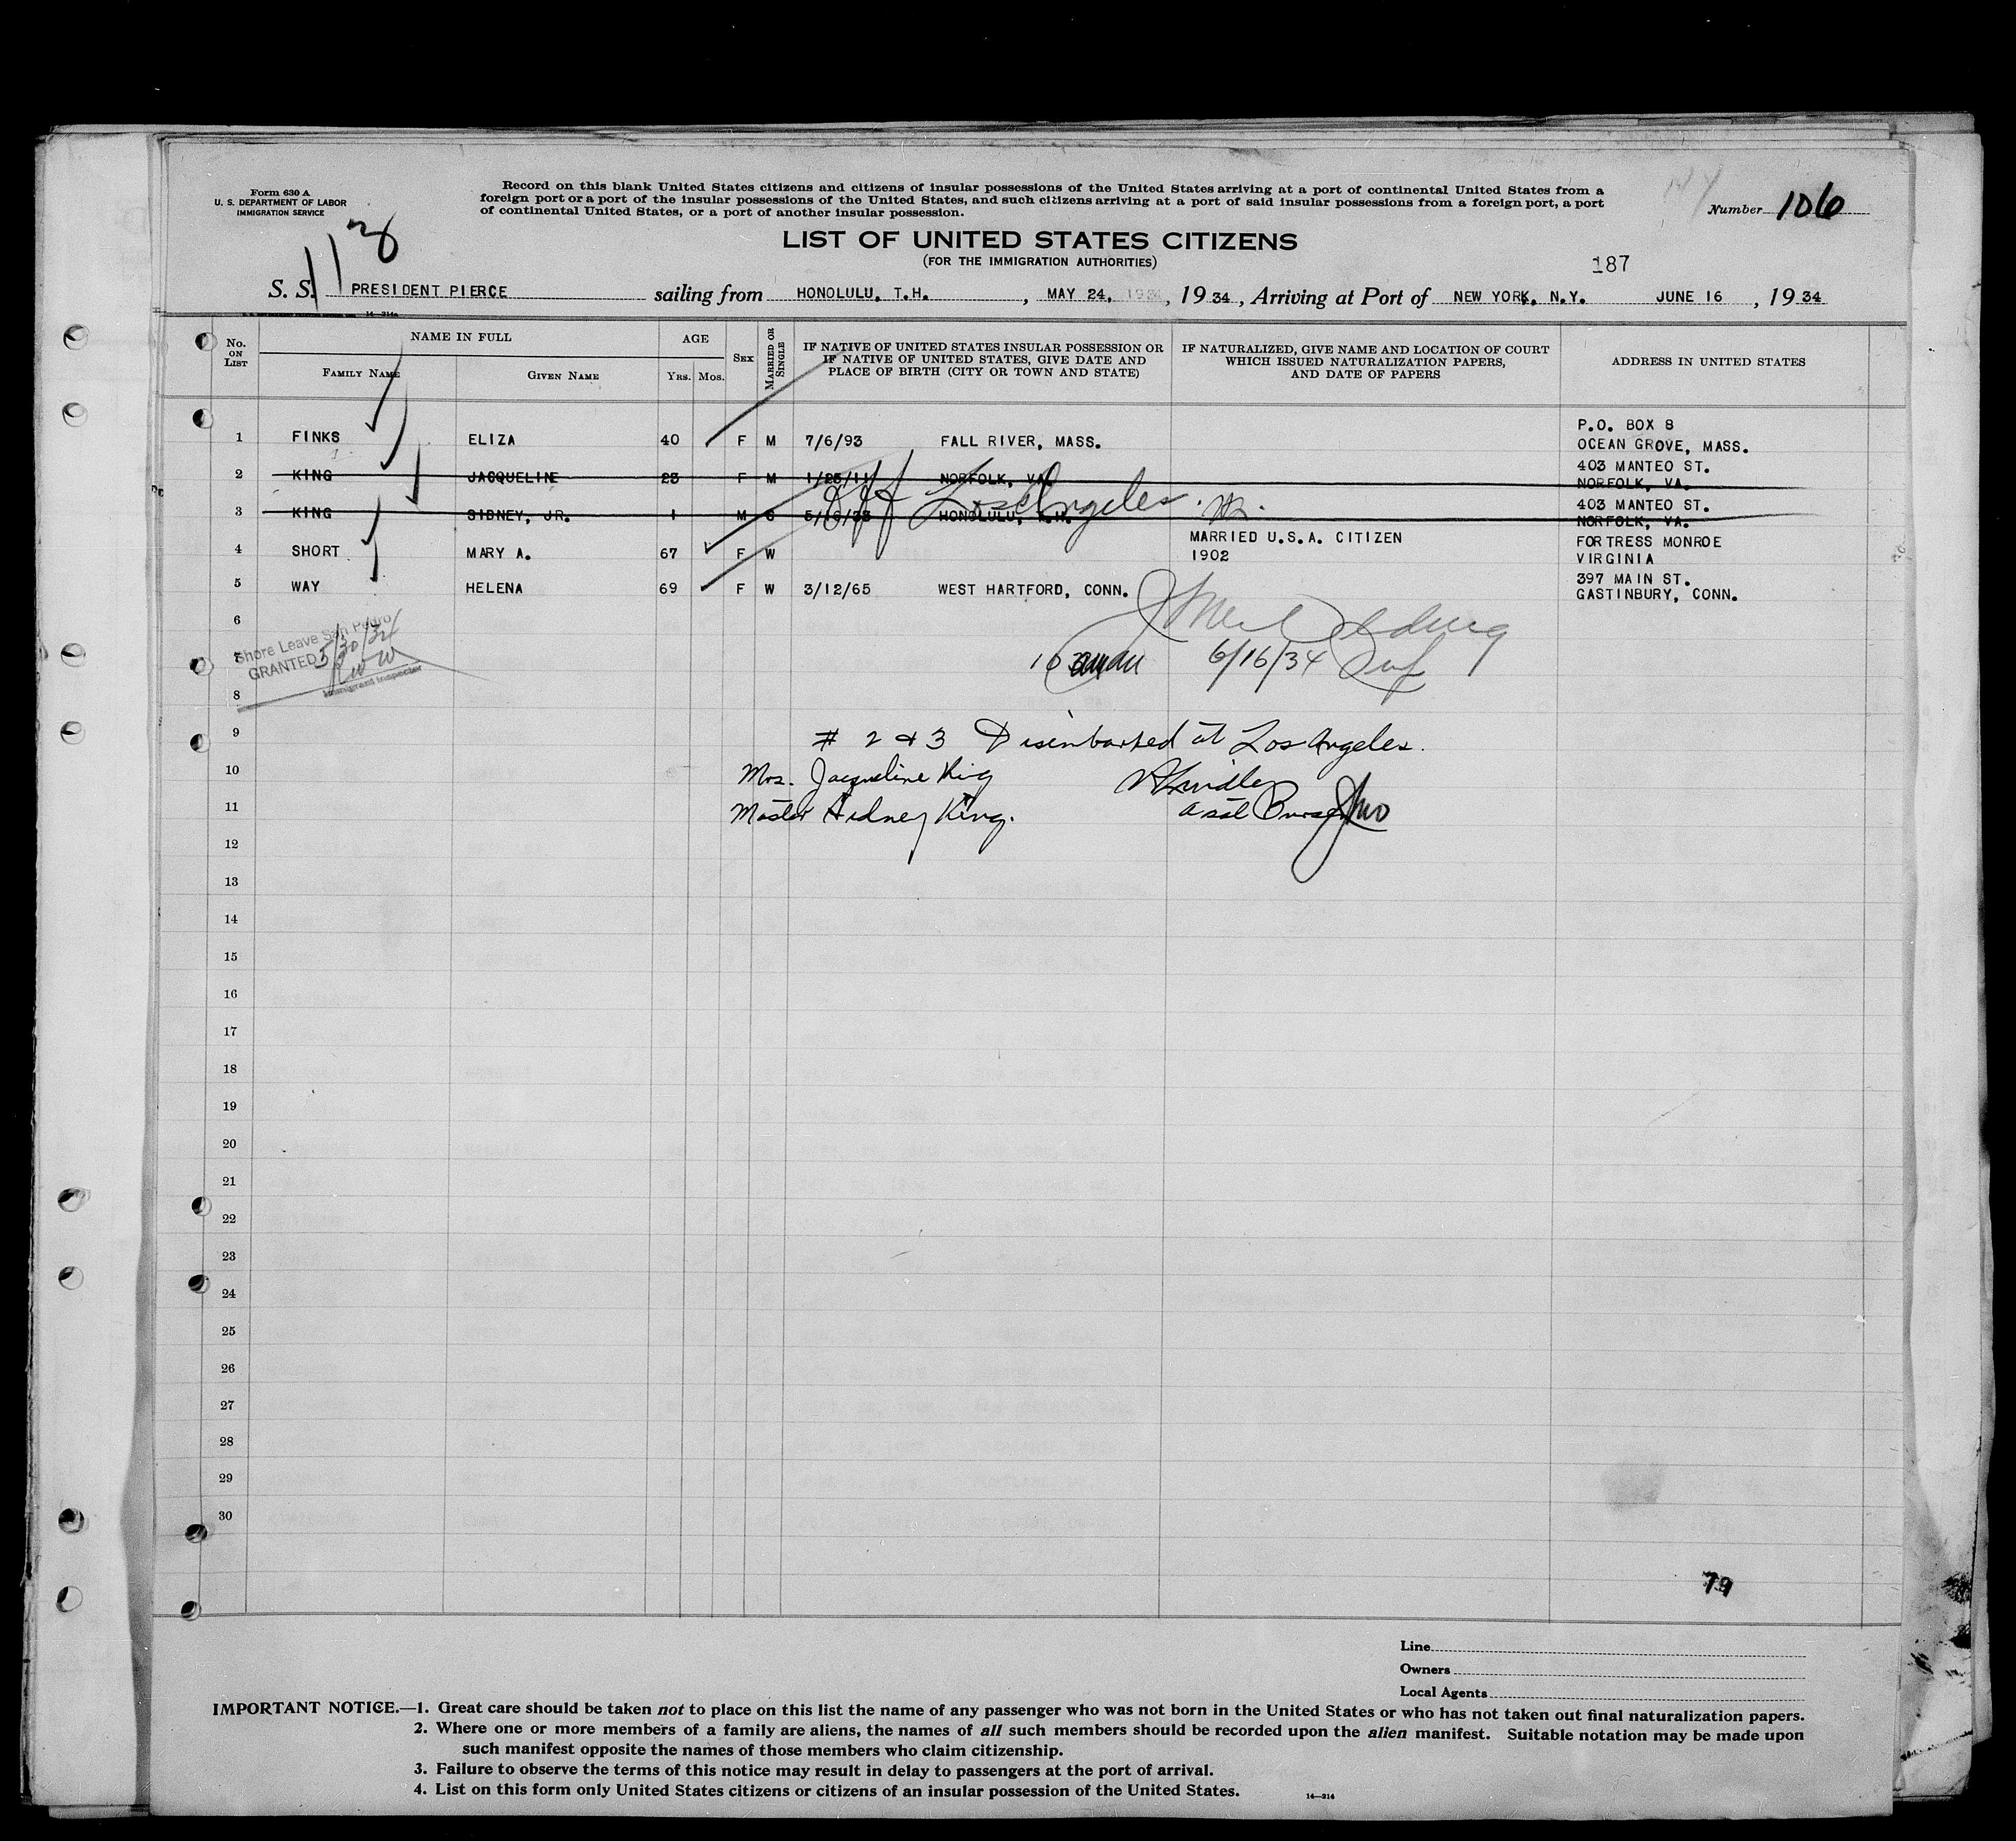 Form 630 A
U. S. DEPARTMENT OF LABOR
IMMIGRATION SERVICE
Record on this blank United States citizens and citizens of insular possessions of the United States arriving at a port of continental United States from a
foreign port or a port of the insular possessions of the United States, and such citizens arriving at a port of said insular possessions from a foreign port, a port
of continental United States, or a port of another insular possession.
Number 106
LIST OF UNITED STATES CITIZENS
(FOR THE IMMIGRATION AUTHORITIES)
187
S. S. PRESIDENT PIERCE sailing from HONOLULU, T.H. , MAY 24, 1934, Arriving at Port of NEW YORK, N.Y. JUNE 16 , 1934
No. ON LIST
NAME IN FULL
FAMILY NAME
GIVEN NAME
AGE
Yrs. Mos.
SEX
MARRIED OR SINGLE
IF NATIVE OF UNITED STATES INSULAR POSSESSION OR
IF NATIVE OF UNITED STATES, GIVE DATE AND
PLACE OF BIRTH (CITY OR TOWN AND STATE)
IF NATURALIZED, GIVE NAME AND LOCATION OF COURT
WHICH ISSUED NATURALIZATION PAPERS,
AND DATE OF PAPERS
ADDRESS IN UNITED STATES
1 FINKS ELIZA 40 F M 7/6/93 FALL RIVER, MASS. P.O. BOX 8
OCEAN GROVE, MASS.
2 KING JACQUELINE 23 F M 1/25/11 NORFOLK, VA. 403 MANTEO ST.
NORFOLK, VA.
Off Los Angeles.
3 KING SIDNEY, JR. 1 M S HONOLULU, T.H. 403 MANTEO ST.
NORFOLK, VA.
4 SHORT MARY A. 67 F W MARRIED U.S.A. CITIZEN
1902
FORTRESS MONROE
VIRGINIA
5 WAY HELENA 69 F W 3/12/65 WEST HARTFORD, CONN. 397 MAIN ST.
GASTINBURY, CONN.
6
Shore Leave San Pedro
GRANTED 5/30/34
Immigrant Inspector
7
6/16/34
8
9
# 2 & 3 Disembarked at Los Angeles.
10
Mrs. Jacqueline King
11
Master Sidney King.
Asst Purser
12
13
14
15
16
17
18
19
20
21
22
23
24
25
26
27
28
29
30
79
Line
Owners
Local Agents
IMPORTANT NOTICE.—1. Great care should be taken not to place on this list the name of any passenger who was not born in the United States or who has not taken out final naturalization papers.
2. Where one or more members of a family are aliens, the names of all such members should be recorded upon the alien manifest. Suitable notation may be made upon
such manifest opposite the names of those members who claim citizenship.
3. Failure to observe the terms of this notice may result in delay to passengers at the port of arrival.
4. List on this form only United States citizens or citizens of an insular possession of the United States.
14—214